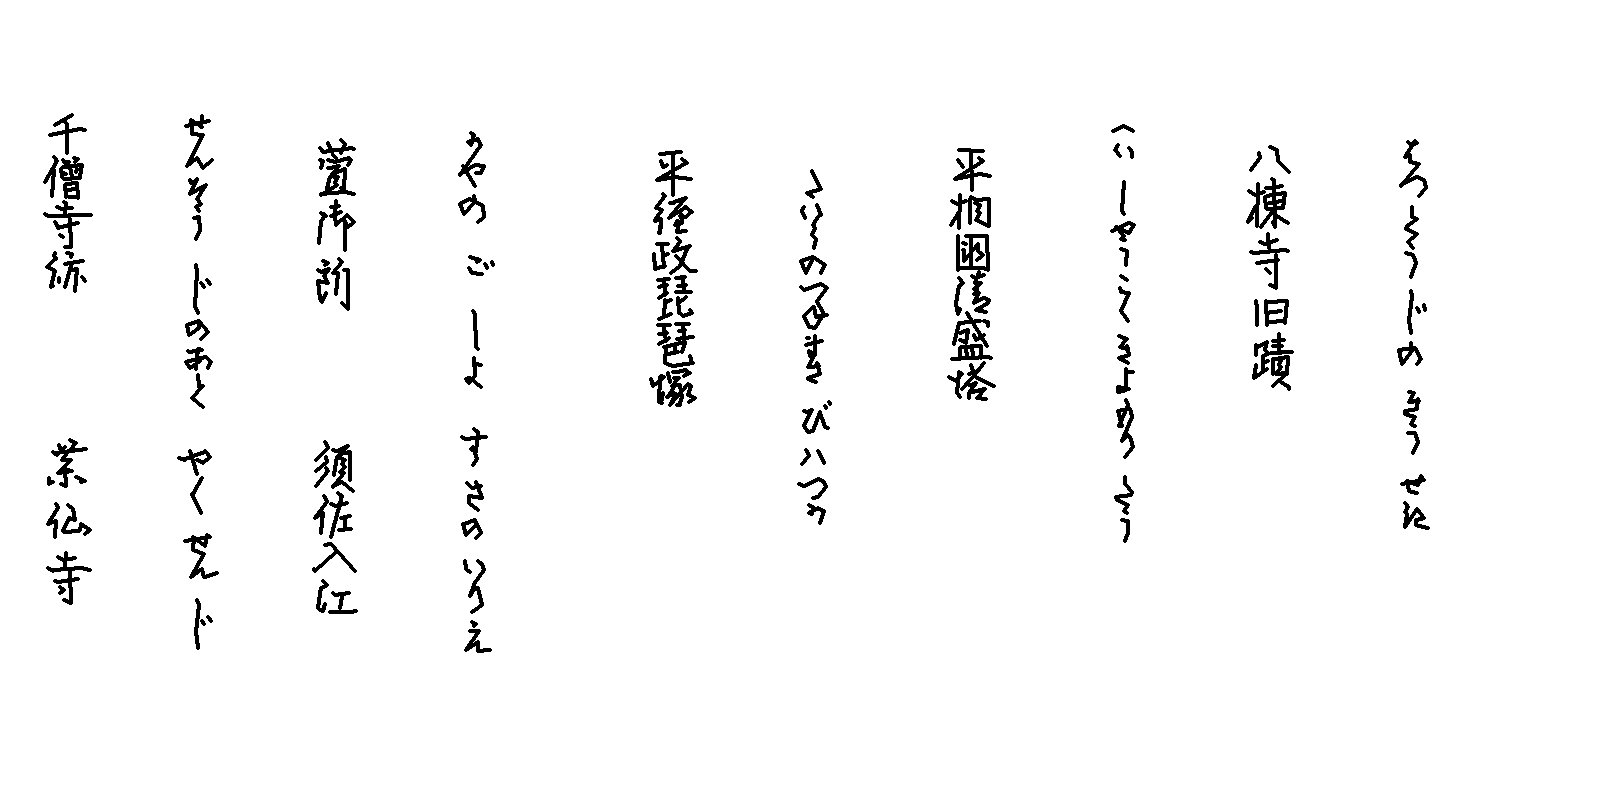 はつとうじの きうせき
八棟寺旧蹟
へい しやうこく きよもり とう
平相國清盛塔
たいらのつねまさ びハつか
平経政琵琶塚
かやの ごしよ すさの いりえ
萱御所 須佐入江
せんそう じのあと やくせんじ
千僧寺跡 薬仙寺